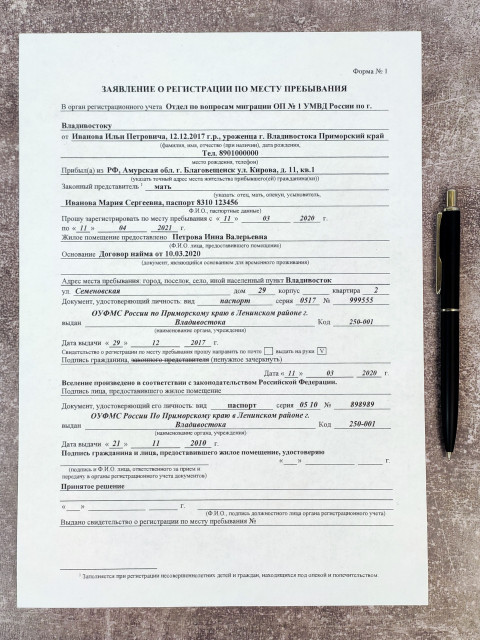 Форма № 1
ЗАЯВЛЕНИЕ О РЕГИСТРАЦИИ ПО МЕСТУ ПРЕБЫВАНИЯ
В орган регистрационного учета Отдел по вопросам миграции ОП № 1 УМВД России по г.
Владивостоку
от Иванова Ильи Петровича, 12.12.2017 г.р., уроженца г. Владивостока Приморский край
(фамилия, имя, отчество (при наличии), дата рождения,
Тел. 8901000000
место рождения, телефон)
Прибыл(а) из РФ, Амурская обл. г. Благовещенск ул. Кирова, д. 11, кв.1
(указать точный адрес места жительства прибывшего(ей) гражданина(ки))
Законный представитель ¹ мать
(указать: отец, мать, опекун, усыновитель,
Иванова Мария Сергеевна, паспорт 8310 123456
Ф.И.О., паспортные данные)
Прошу зарегистрировать по месту пребывания с « 11 » 03 2020 г.
по « 11 » 04 2021 г.
Жилое помещение предоставлено Петрова Инна Валерьевна
(Ф.И.О. лица, предоставившего помещение)
Основание Договор найма от 10.03.2020
(документ, являющийся основанием для временного проживания)
Адрес места пребывания: город, поселок, село, иной населенный пункт Владивосток
ул. Семеновская дом 29 корпус квартира 2
Документ, удостоверяющий личность: вид паспорт серия 0517 № 999555
ОУФМС России по Приморскому краю в Ленинском районе г.
выдан Владивостока Код 250-001
(наименование органа, учреждения)
Дата выдачи « 29 » 12 2017 г.
Свидетельство о регистрации по месту пребывания прошу направить по почте выдать на руки V
Подпись гражданина, законного представителя (ненужное зачеркнуть)
Дата « 11 » 03 2020 г.
Вселение произведено в соответствии с законодательством Российской Федерации.
Подпись лица, предоставившего жилое помещение
Документ, удостоверяющий его личность: вид паспорт серия 05 10 № 898989
ОУФМС России По Приморскому краю в Ленинском районе г.
выдан Владивостока Код 250-001
(наименование органа, учреждения)
Дата выдачи « 21 » 11 2010 г.
Подпись гражданина и лица, предоставившего жилое помещение, удостоверяю
« » г.
(подпись и Ф.И.О. лица, ответственного за прием и
передачу в органы регистрационного учета документов)
Принятое решение
« » г.
(Ф.И.О., подпись должностного лица органа регистрационного учета)
Выдано свидетельство о регистрации по месту пребывания №
¹ Заполняется при регистрации несовершеннолетних детей и граждан, находящихся под опекой и попечительством.